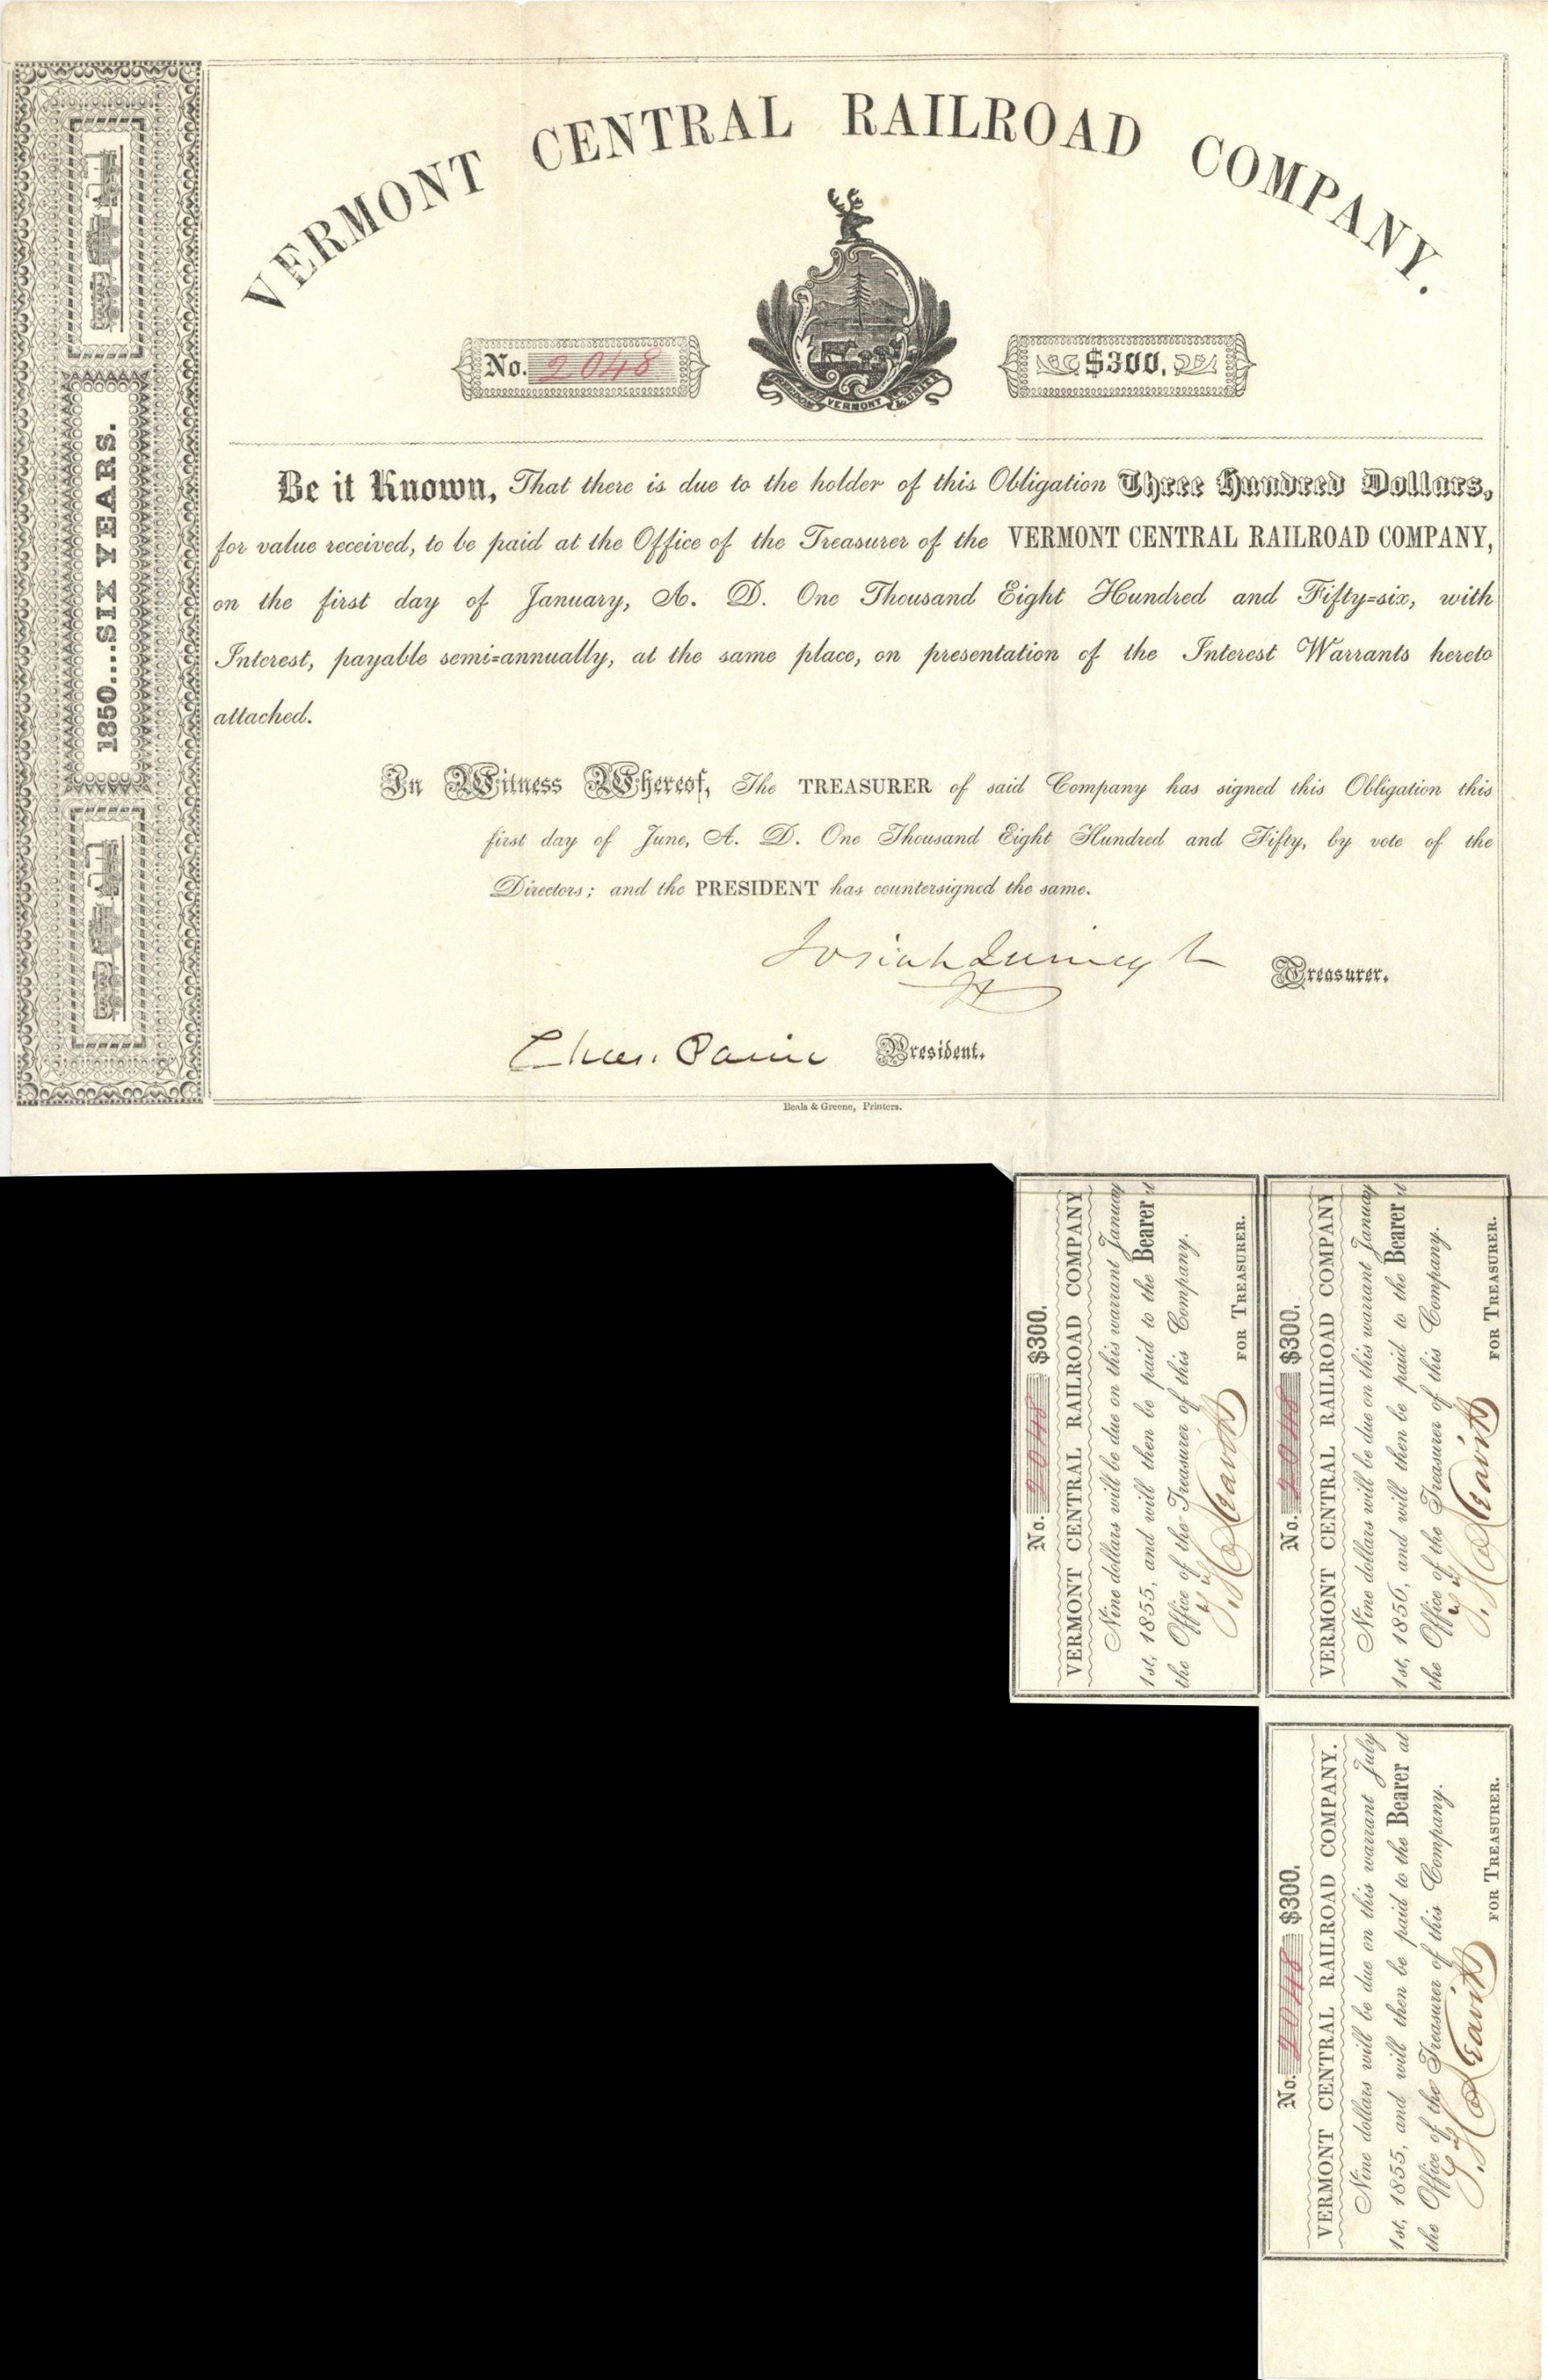 VERMONT CENTRAL RAILROAD COMPANY.
No. 2048
FREEDOM VERMONT & UNITY
$300.
1850....SIX YEARS.
Be it Known, That there is due to the holder of this Obligation Three Hundred Dollars,
for value received, to be paid at the Office of the Treasurer of the VERMONT CENTRAL RAILROAD COMPANY,
on the first day of January, A. D. One Thousand Eight Hundred and Fifty=six, with
Interest, payable semi=annually, at the same place, on presentation of the Interest Warrants hereto
attached.
In Witness Whereof, The TREASURER of said Company has signed this Obligation this
first day of June, A. D. One Thousand Eight Hundred and Fifty, by vote of the
Directors; and the PRESIDENT has countersigned the same.
Josiah Quincy Jr Treasurer.
Chas. Paine President.
Beals & Greene, Printers.
No. 2048 $300.
VERMONT CENTRAL RAILROAD COMPANY
Nine dollars will be due on this warrant January
1st, 1855, and will then be paid to the Bearer at
the Office of the Treasurer of this Company.
Leavitt
FOR TREASURER.
No. 2048 $300.
VERMONT CENTRAL RAILROAD COMPANY
Nine dollars will be due on this warrant January
1st, 1856, and will then be paid to the Bearer at
the Office of the Treasurer of this Company.
Leavitt
FOR TREASURER.
No. 2048 $300.
VERMONT CENTRAL RAILROAD COMPANY.
Nine dollars will be due on this warrant July
1st, 1855, and will then be paid to the Bearer at
the Office of the Treasurer of this Company.
Leavitt
FOR TREASURER.